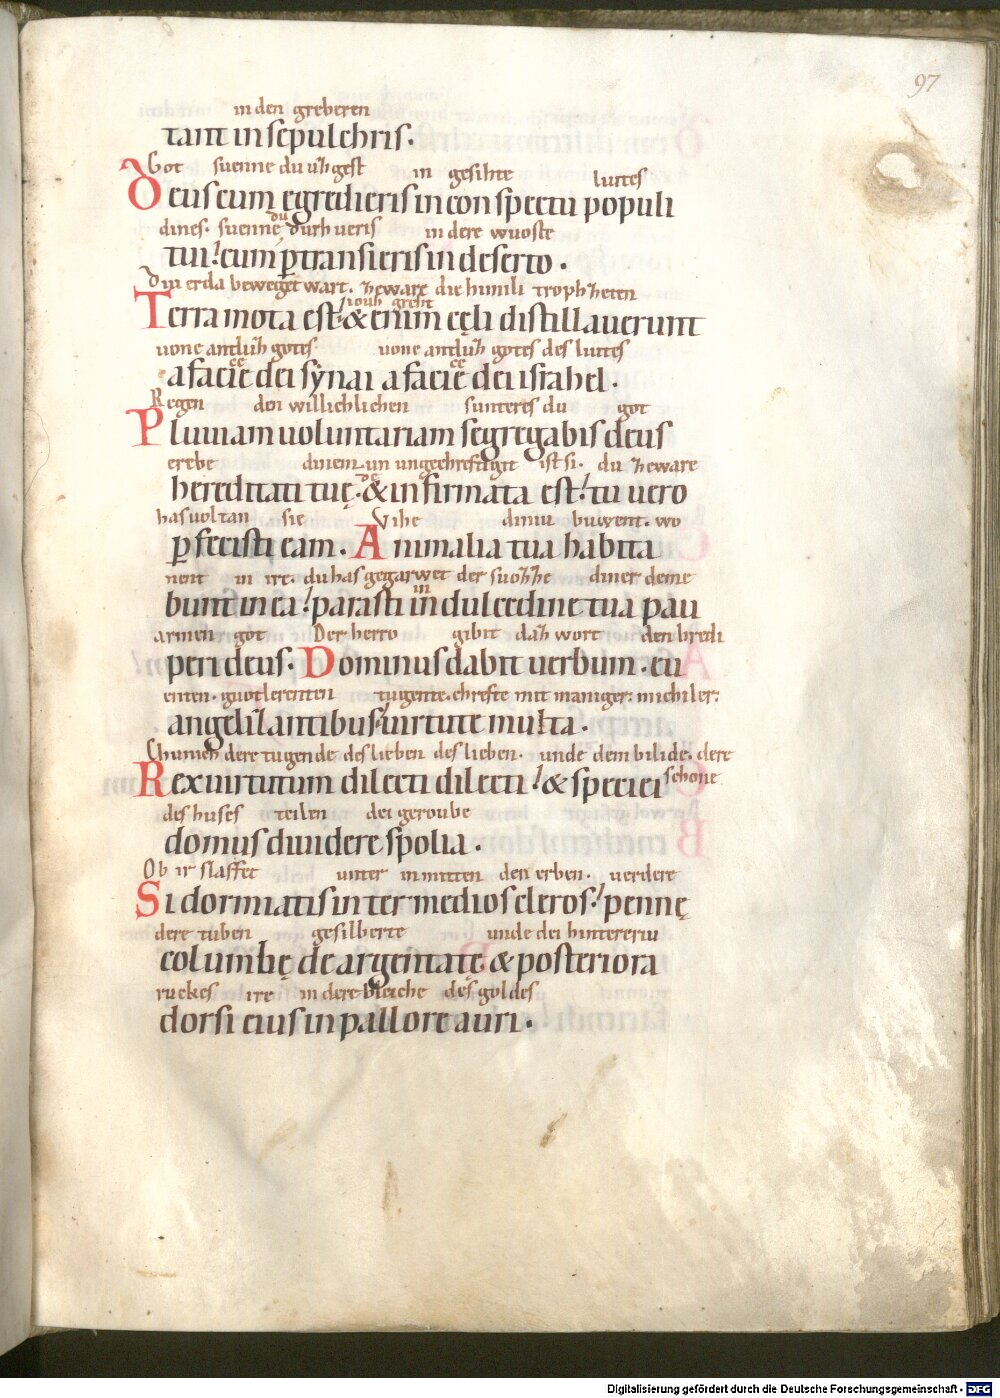 97
in den greberen
tant in sepulchris.
Got suenne du uzh gest in gesihte lutes
Deus cum egredieris in conspectu populi
dines. suenne du durh ueris in dere wuoste
tui! cum ptransieris in deserto.
Diu erda beweget wart. zeware die himili trophzeten
Terra mota est! & enim cęli distillauerunt
uone antluzh gotes uone antluzh gotes des lutes
a facie dei synai a facie dei israhel.
Regen den willichlichen sunteres du got
Pluuiam uoluntariam segregabis deus
erebe dinem. un ungechreftigit ist si. du zeware
hereditati tuę. & infirmata est! tu uero
hasuoltan sie Vihe diniu buwent. wo
pfecisti eam. Animalia tua habita
nent in ire. du has gegarwet der suozhe diner deme
bunt in ea! parasti in dulcedine tua pau
armen got Der herro gibit dazh wort den bredi
peri deus. Dominus dabit uerbum. eu
enten. guotlerenten tugente. chrefte mit maniger. michiler.
angelizantibus! uirtute multa.
Chunich dere tugende des lieben des lieben. unde dem bilide. dere
Rex uirtutum dilecti dilecti! & speciei schone
des huses teilen dei geroube
domus diuidere spolia.
Ob ir slaffet unter in mitten den erben. uerdere
Si dormiatis inter medios cleros! pennę
dere tuben gesilberte unde dei hintereriu
columbę de argentatę. & posteriora
ruckes ire in dere bleiche des goldes
dorsi eius in pallore auri.
Digitalisierung gefördert durch die Deutsche Forschungsgemeinschaft - DFG